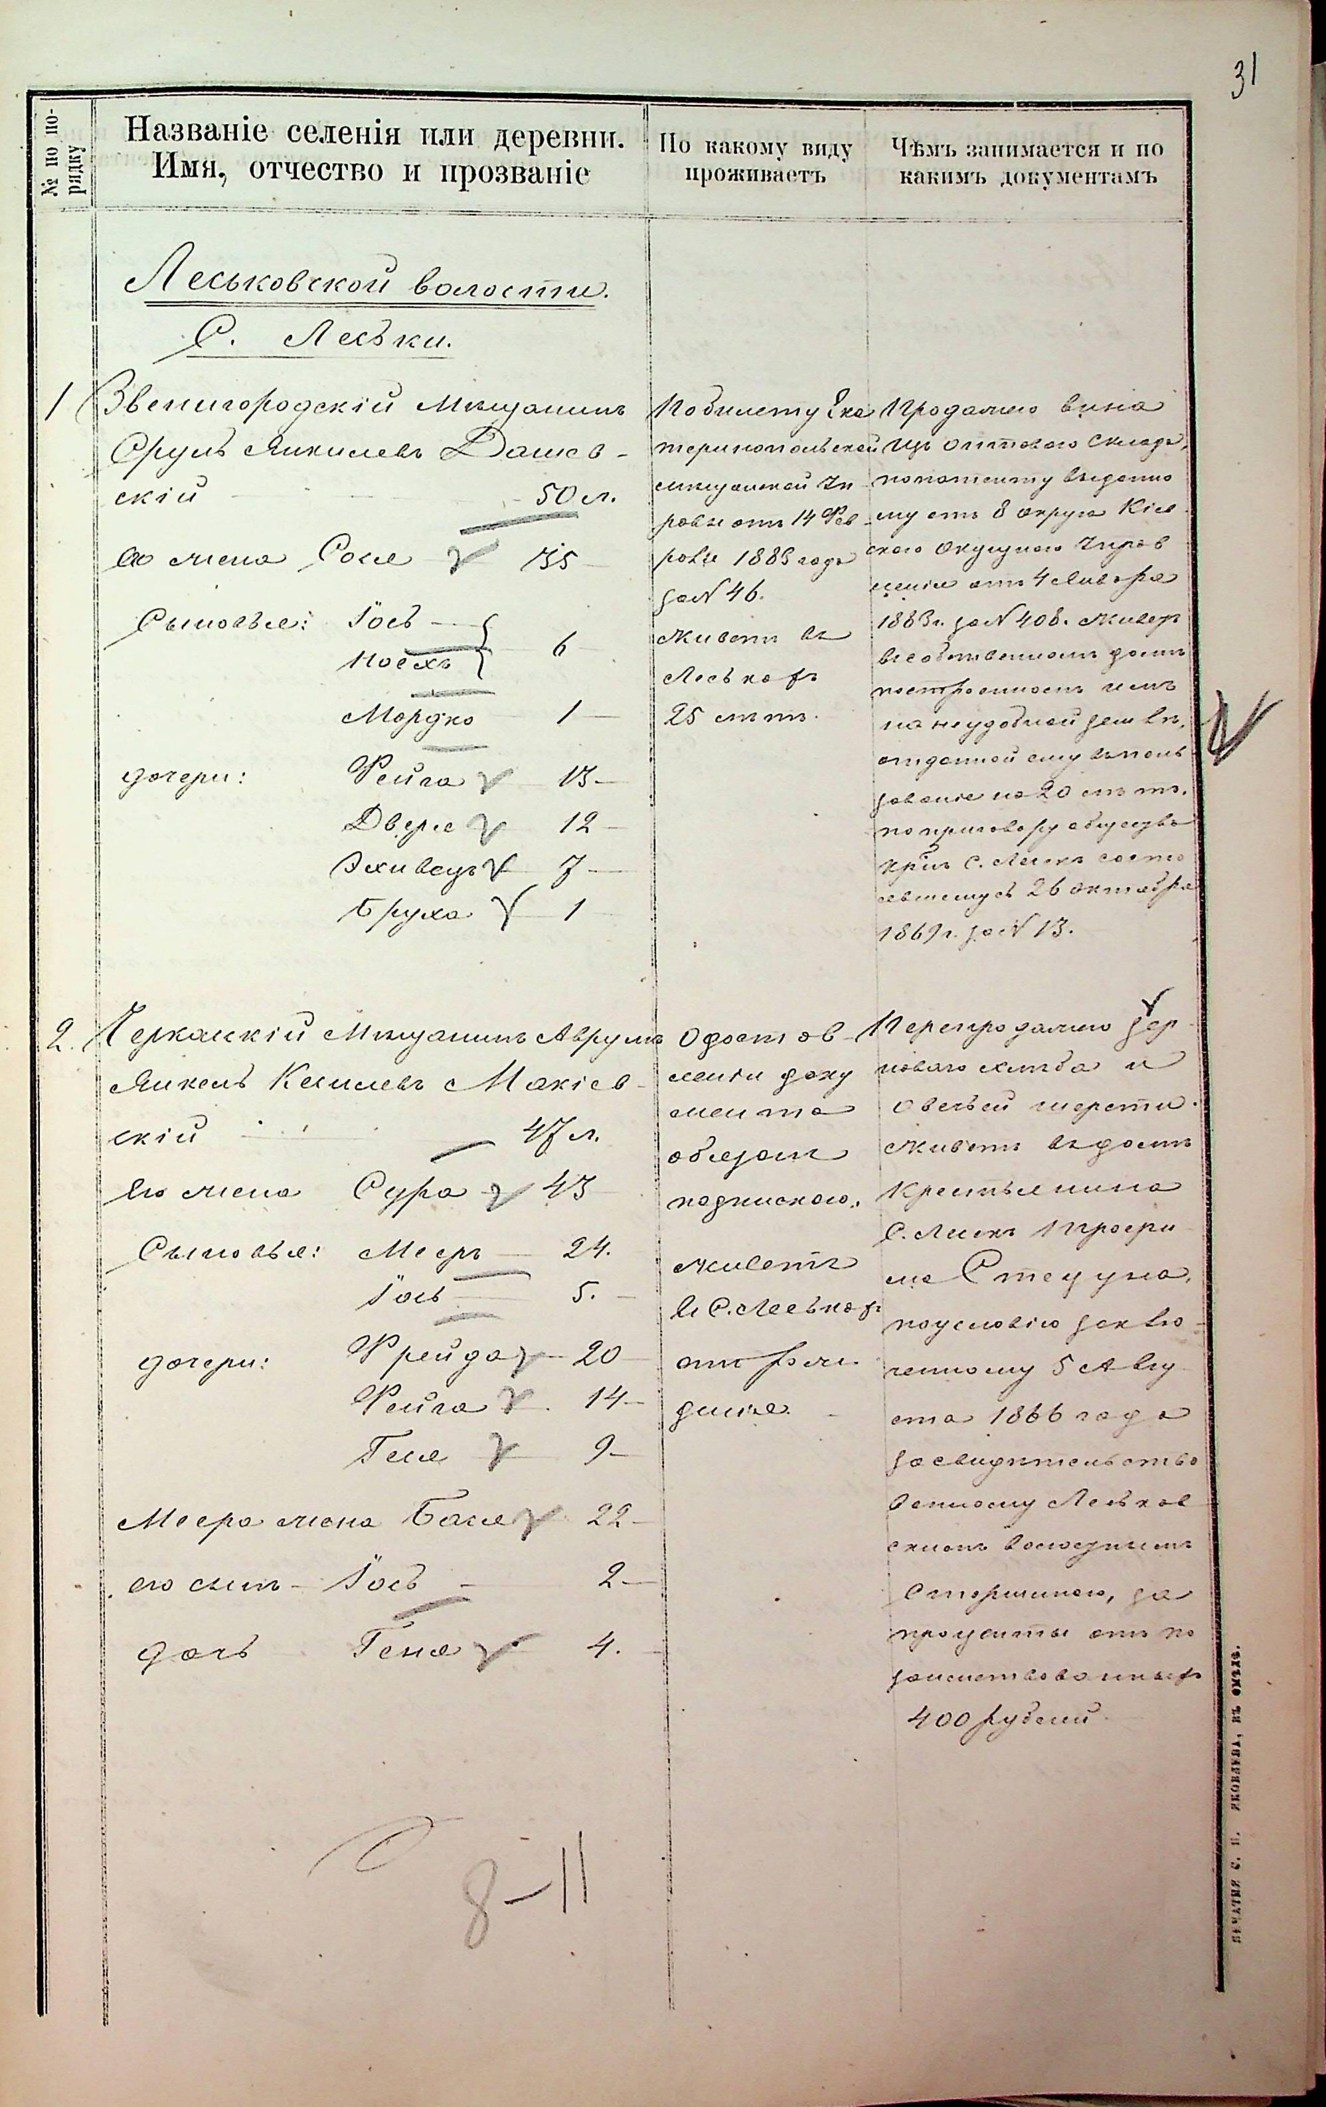 31
№ по по-
рядку
Названіе селенія или деревни.
Имя, отчество и прозваніе
По какому виду
проживаетъ
Чѣмъ занимается и по
какимъ документамъ
Леськовской волости.
С. Леськи.
1
Звенигородскій Мѣщанинъ
Сруль Янкилевъ Дашев-
скій 50 л.
Его жена Сося 35
Сыновья: Іось
Носехъ 6
Мордко 1
дочери: Фейга 13
Двера 12
7
Бруха 1
По билету Ека
теринопольской
мѣщанской Уп
равы отъ 14 Фев
раля 1883 года
за N 46.
Живетъ въ
Леськахъ
25 лѣтъ.
Продажею вина
изъ оптоваго склада,
по патенту выданно
му отъ 8 округа Кіев
скаго Акцизнаго Управ
ленія отъ 4 Января
1883 г. за N 408. Живетъ
въ собственномъ домѣ
построенномъ имъ
на неудобной землѣ,
отданной ему въ поль
зованіе на 20 лѣтъ,
по приговору общества
крѣ. с. Лесекъ состо
явшемуся 26 октября
1869 г. за N 13.
2.
Черкасскій Мѣщанинъ Аврумъ
Янкель Кесилевъ Макіев-
скій 47 л.
Его жена Сура 43
Сыновья: Мееръ 24.
Іось 5.
дочери: Фрейда 20
Фейга 14
Геня 9
Меера жена Бася 22
его сынъ Іось 2
дочь Геня 4.
О достав-
леніи доку
мента
обязанъ
подпискою.
Живетъ
въ С. Леськахъ
отъ рож
денія.
Перепродажею зер
новаго хлѣба и
овечьей шерсти.
Живетъ въ домѣ
Крестьянина
С. Лесекъ
по условію заклю
ченному 5 Авгу
ста 1866 года
засвидѣтельство
ванному Леськов
скимъ волостнымъ
Старшиною, за
проценты отъ по
заимствованныхъ
400 рублей
8-11
ПЕЧАТНЯ С. П. ЯКОВЛЕВА, ВЪ СМѢЛѢ.